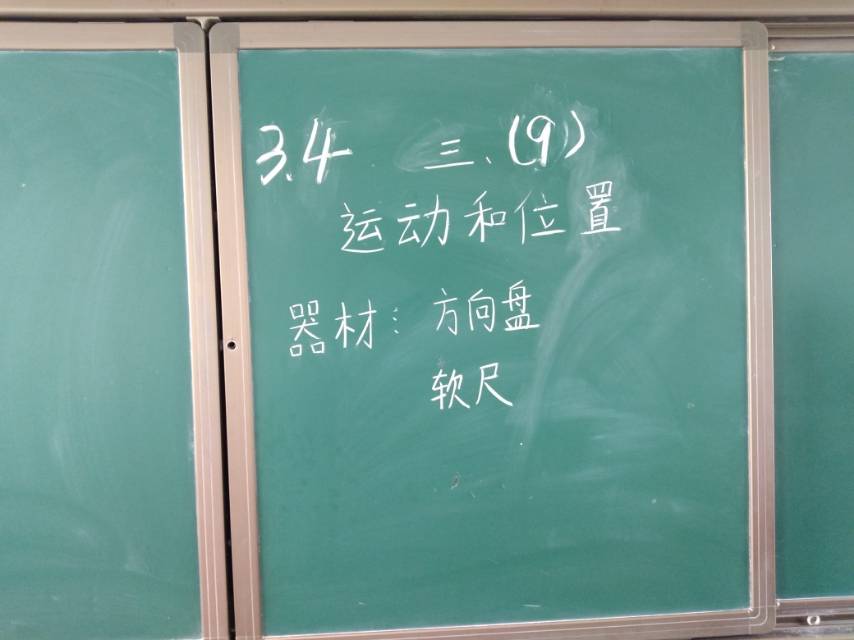 3.4 三、(9)
运动和位置
器材：方向盘
软尺